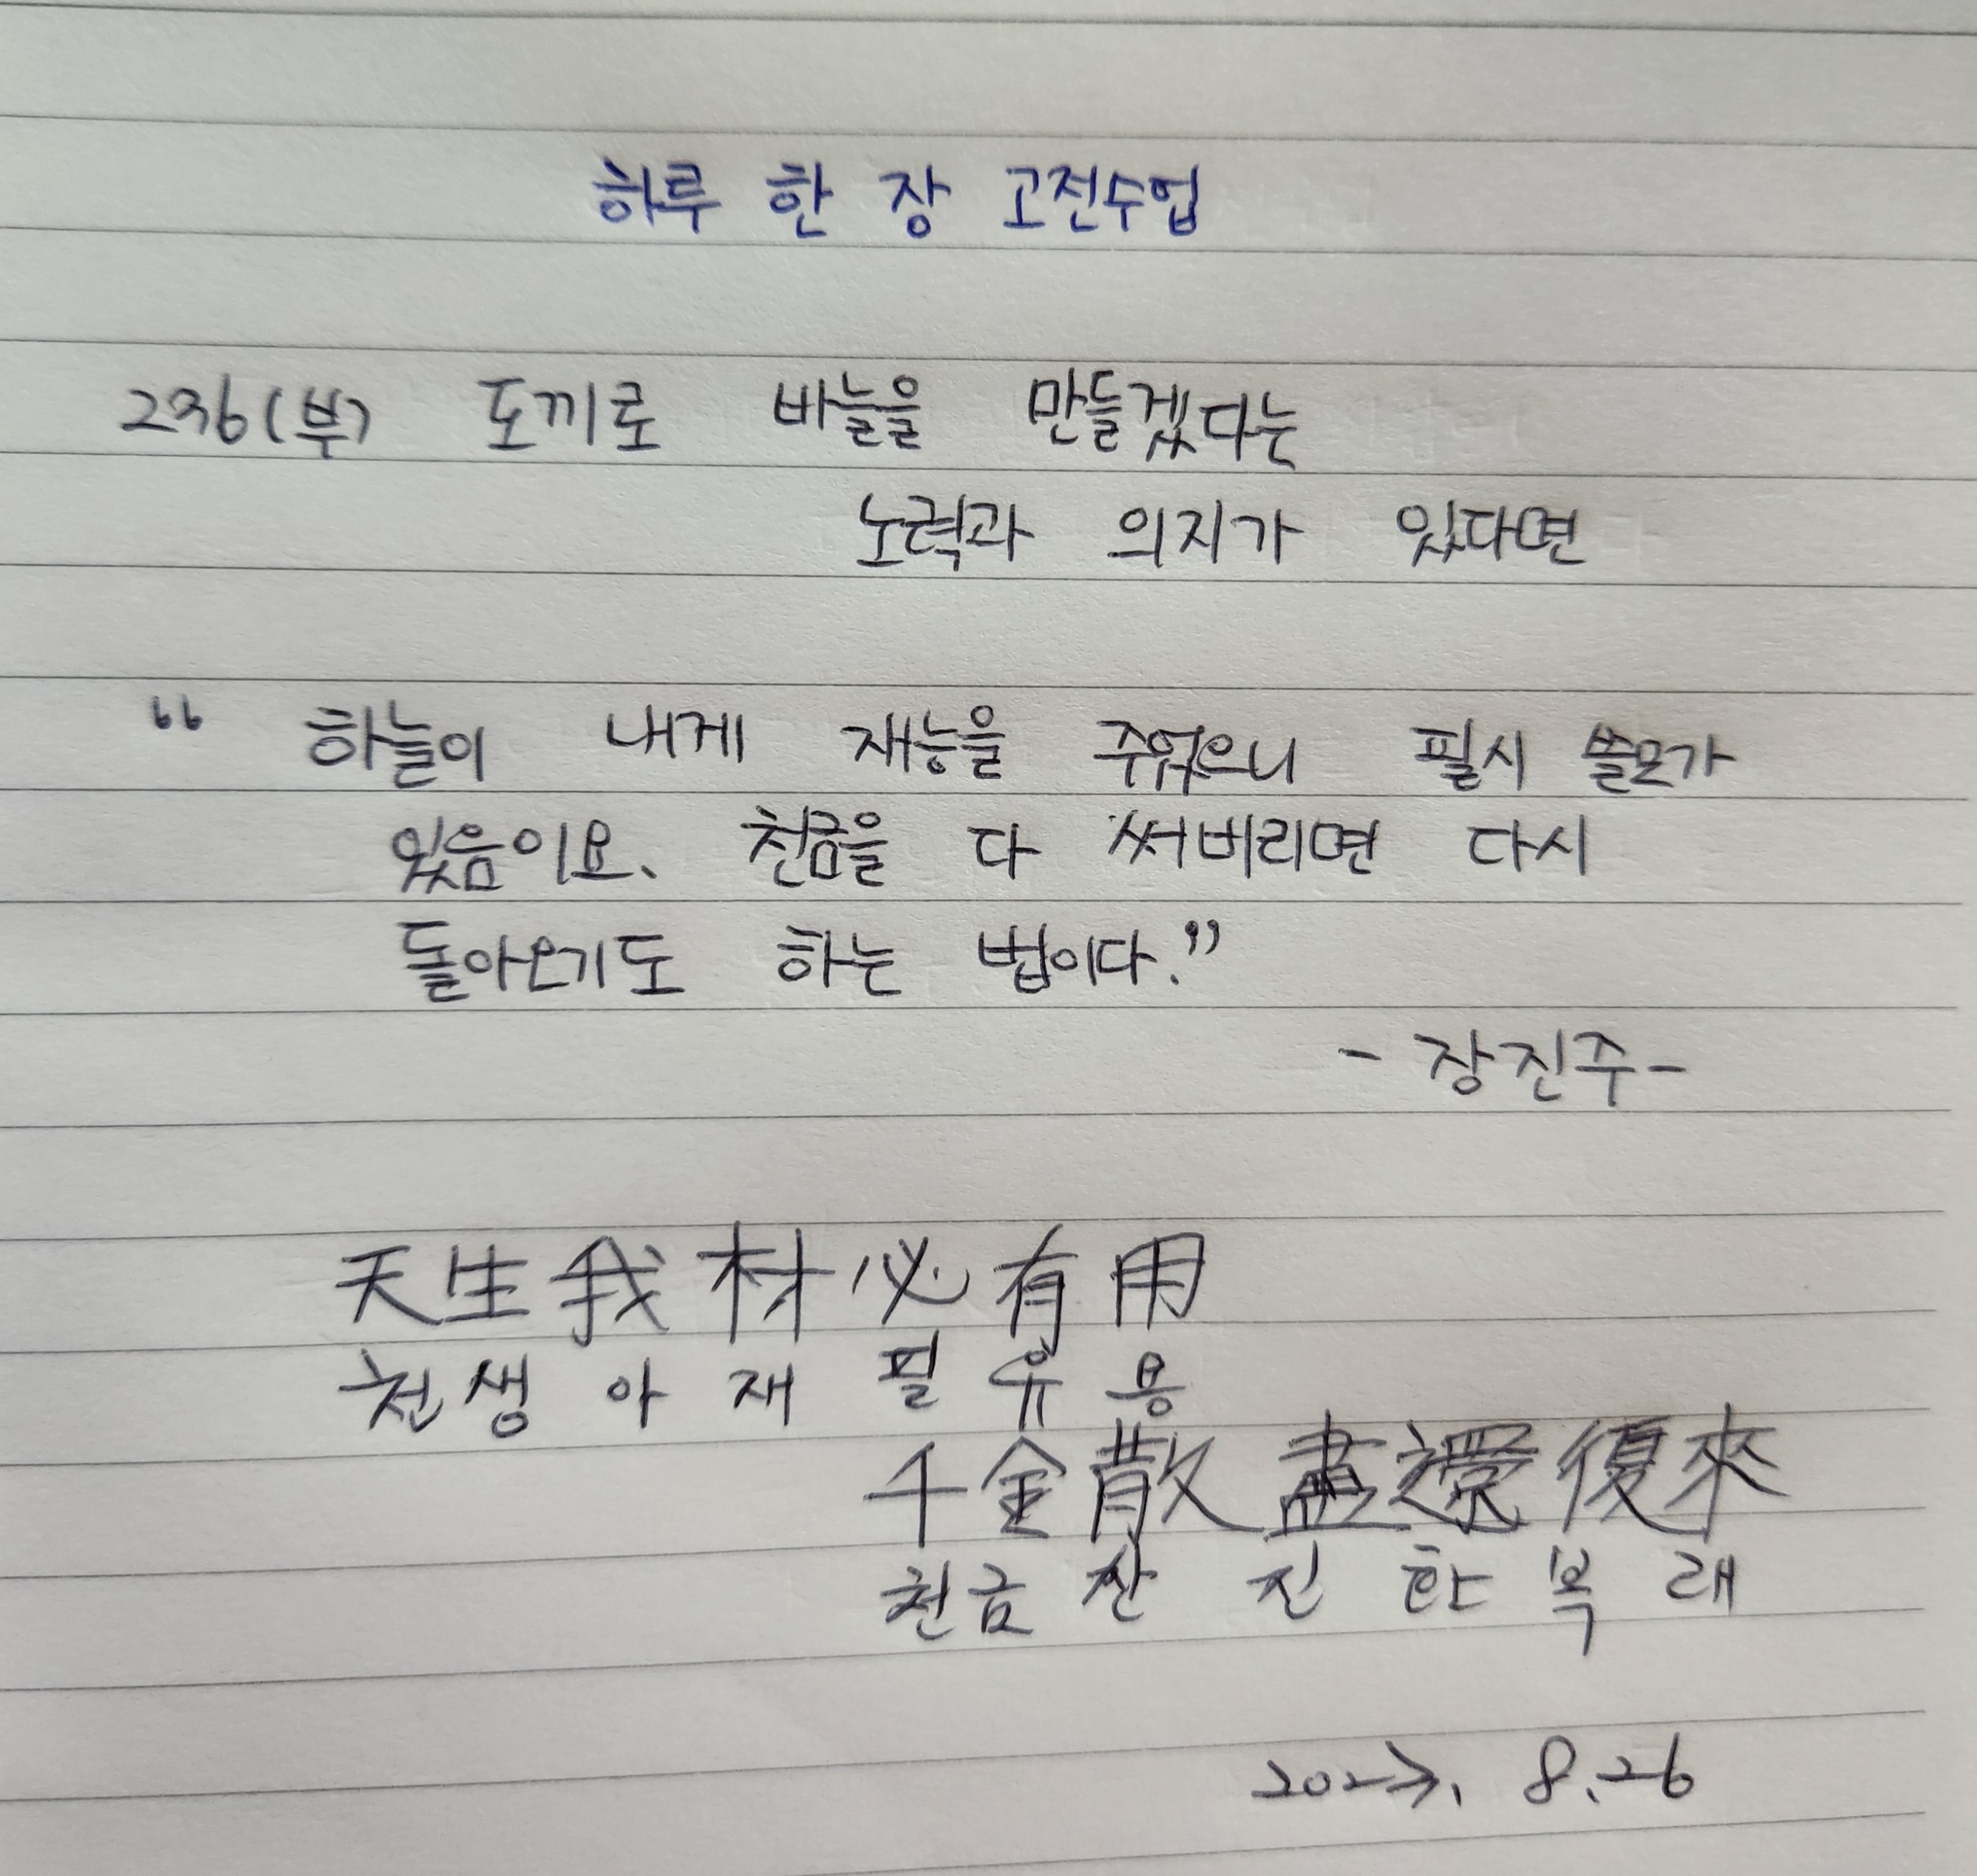 하루 한 장 고전수업
236(부) 도끼로 바늘을 만들겠다는
노력과 의지가 있다면
“ 하늘이 내게 재능을 주었으니 필시 쓸모가
있음이요. 천금을 다 써버리면 다시
돌아오기도 하는 법이다.”
- 장진주-
天生我材必有用
천생 아 재 필 유 용
千金散盡還復來
천금 산 진 환 복 래
8.26